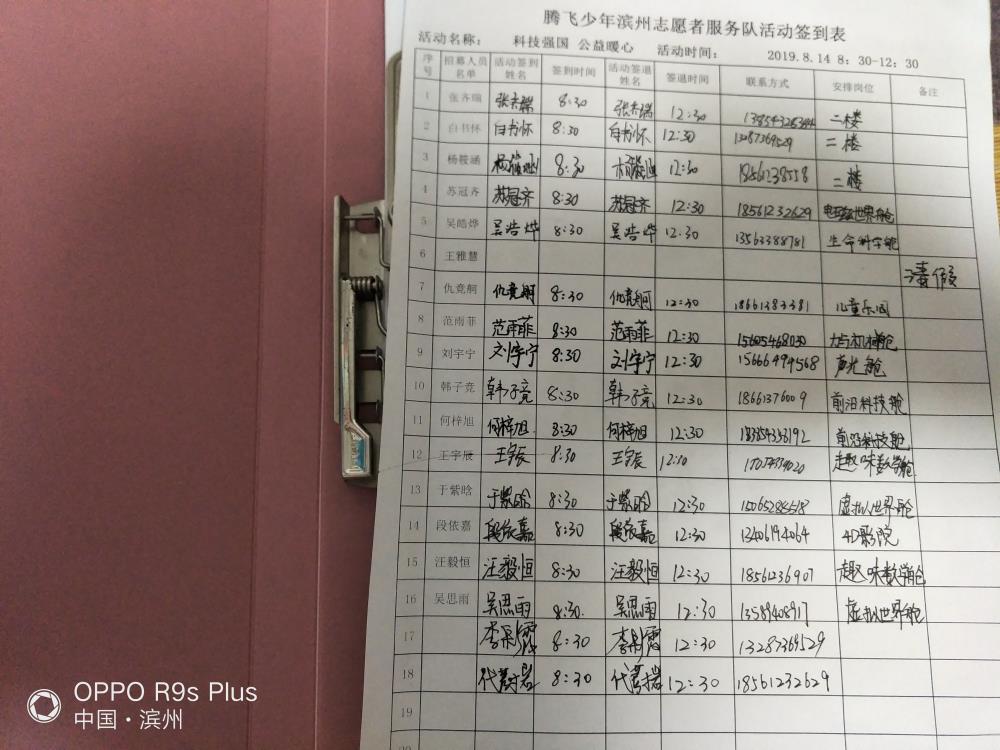 腾飞少年滨州志愿者服务队活动签到表
活动名称： 科技强国 公益暖心 活动时间： 2019.8.14 8：30-12：30
序号 招募人员名单 活动签到姓名 签到时间 活动签退姓名 签退时间 联系方式 安排岗位 备注
1 张齐瑞 8:30 12:30 二楼
2 白书怀 白书怀 8:30 白书怀 12:30 13287369529 二楼
3 杨筱涵 8:30 12:30 18561238558 二楼
4 苏冠齐 苏冠齐 8:30 苏冠齐 12:30 18561232629 电磁世界舱
5 吴皓烨 吴浩烨 8:30 吴浩烨 12:30 13563388781 生命科学舱
6 王雅慧 请假
7 仇竞舸 仇竞舸 8:30 仇竞舸 12:30 18661383381 儿童乐园
8 范雨菲 范雨菲 8:30 范雨菲 12:30 15605468030 力与机械舱
9 刘宇宁 刘宇宁 8:30 刘宇宁 12:30 15666494568 声光舱
10 韩子竞 韩子竞 8:30 韩子竞 12:30 18661376009 前沿科技舱
11 何梓旭 何梓旭 8:30 何梓旭 12:30 前沿科技舱
12 王宇辰 王宇辰 8:30 王宇辰 12:10 趣味数学舱
13 于紫晗 于紫晗 8:30 于紫晗 12:30 虚拟世界舱
14 段依嘉 段依嘉 8:30 段依嘉 12:30 13406194064 4D影院
15 汪毅恒 汪毅恒 8:30 汪毅恒 12:30 18561236907 趣味数学舱
16 吴思雨 吴思雨 8:30. 吴思雨 12:30 13589408917 虚拟世界舱
17 8:30 12:30 13287369529
18 8:30 12:30 18561232629
19
OPPO R9s Plus
中国·滨州